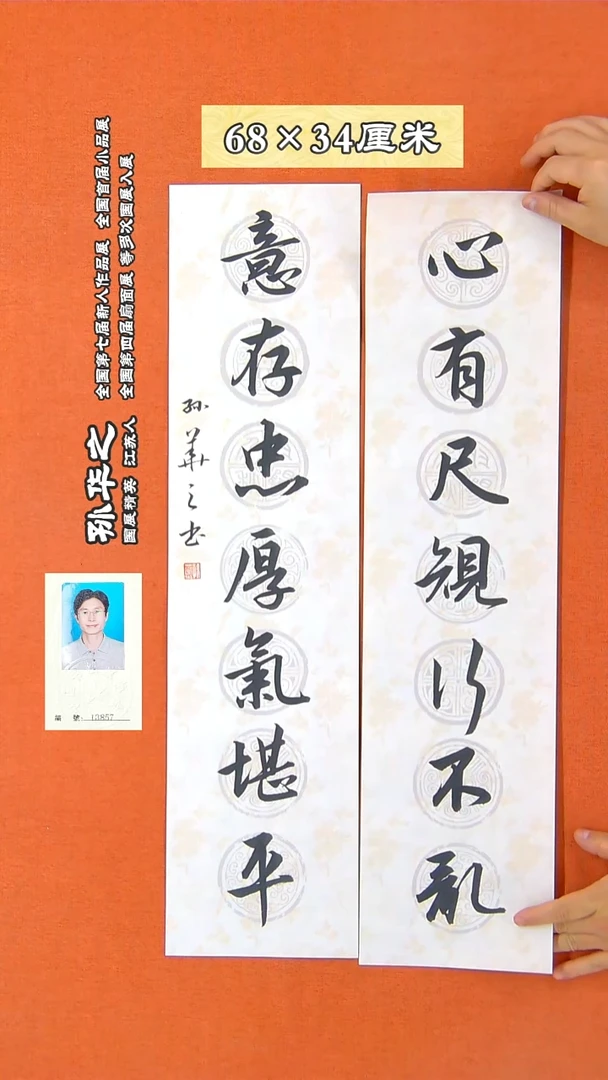 68×34厘米
心有尺規行不亂
意存忠厚氣堪平
孙華之书
孙华之
国展精英 江苏人
全国第七届新人作品展 全国首届小品展
全国第四届扇面展 等多次国展入展
號: 13857